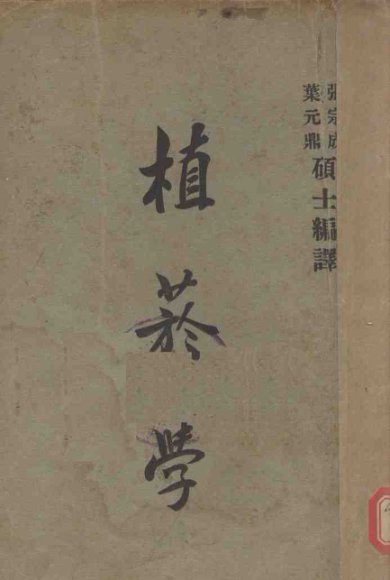 張宗成
葉元鼎
碩士編譯
植菸學